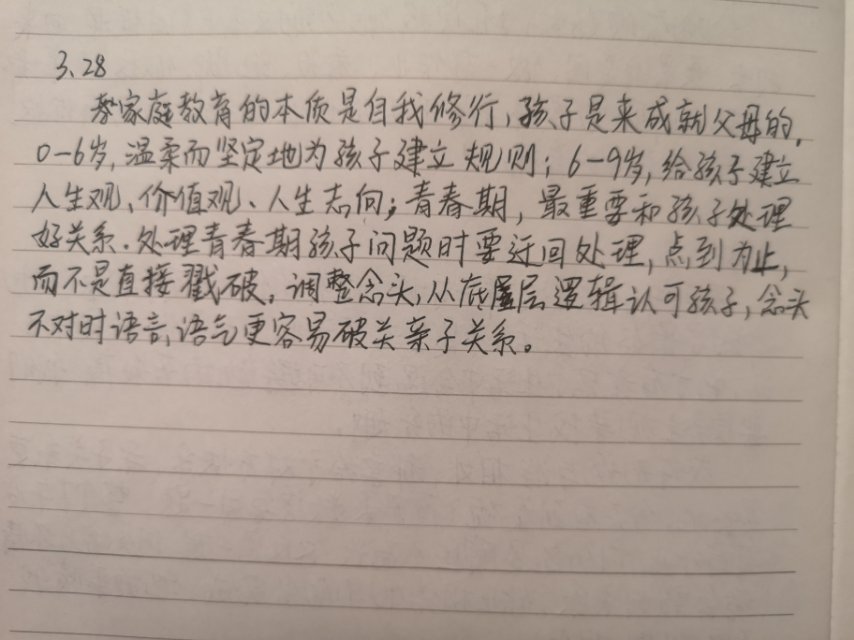 3.28
家庭教育的本质是自我修行，孩子是来成就父母的，
0-6岁，温柔而坚定地为孩子建立规则；6-9岁，给孩子建立
人生观、价值观、人生志向；青春期，最重要和孩子处理
好关系．处理青春期孩子问题时要迂回处理，点到为止，
而不是直接戳破。调整念头，从底层逻辑认可孩子，念头
不对时语言，语气更容易破关亲子关系。